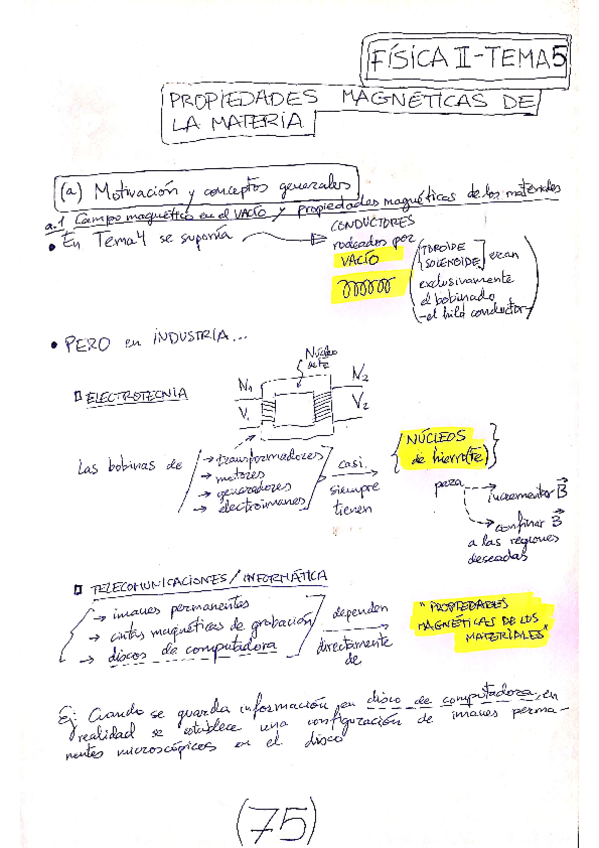 FÍSICA II-TEMA 5
PROPIEDADES MAGNÉTICAS DE
LA MATERIA
(a) Motivación y conceptos generales
a.1 Campo magnético en el VACÍO y propiedades magnéticas de los materiales
• En Tema 4 se suponía
CONDUCTORES
rodeados por
VACÍO
TOROIDE
SOLENOIDE
eran
exclusivamente
el bobinado
-el hilo conductor-
• PERO en INDUSTRIA...
ELECTROTECNIA
Núcleo
de Fe
N1
V1
N2
V2
Las bobinas de
→ transformadores
→ motores
→ generadores
→ electroimanes
casi
siempre
tienen
NÚCLEOS
de hierro (Fe)
para
incrementar B
confinar B
a las regiones
deseadas
TELECOMUNICACIONES/INFORMÁTICA
→ imanes permanentes
→ cintas magnéticas de grabación
→ discos de computadora
dependen
directamente
de
"PROPIEDADES
MAGNÉTICAS DE LOS
MATERIALES"
Ej: Cuando se guarda información en disco de computadora, en
realidad se establece una configuración de imanes perma-
nentes microscópicos en el disco
(75)